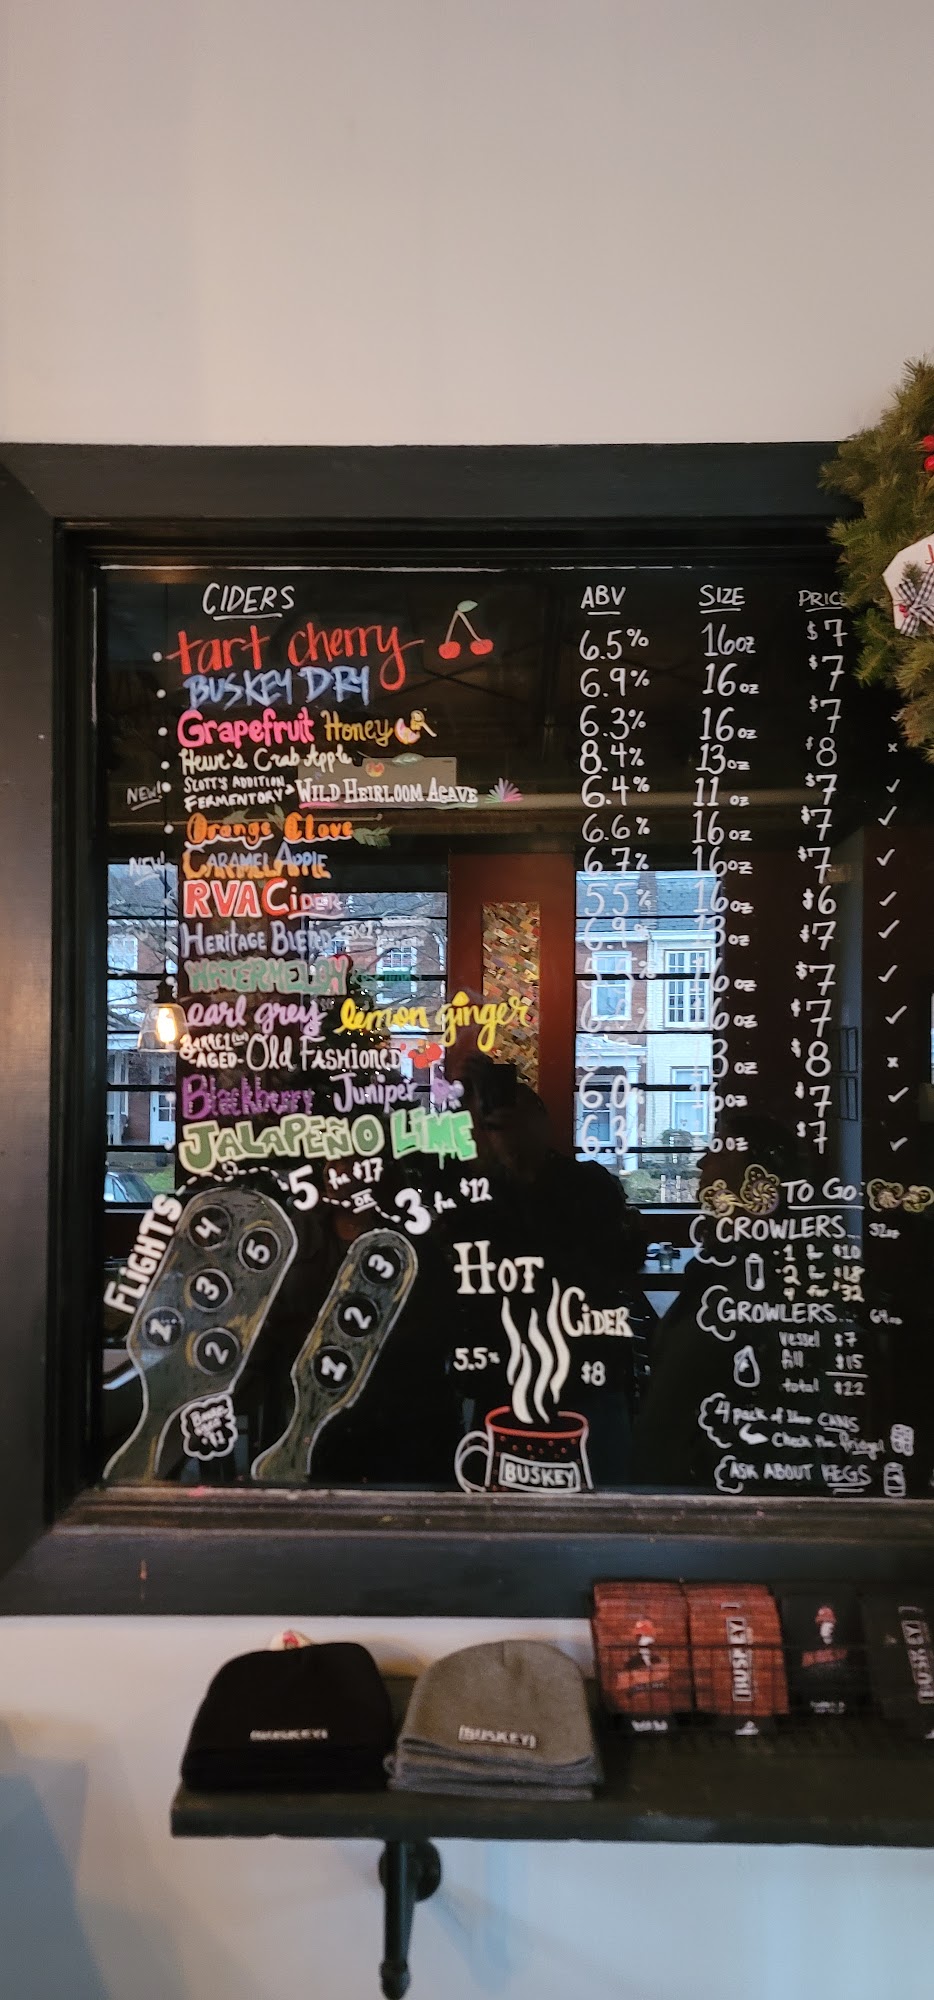 CIDERS ABV SIZE PRICE
tart cherry 6.5% 16oz $7
BUSKEY DRY 6.9% 16oz $7
Grapefruit Honey 6.3% 16oz $7
Hewe's Crab Apple 8.4% 13oz $8 x
NEW! SCOTT'S ADDITION FERMENTORY WILD HEIRLOOM AGAVE 6.4% 11 oz $7 ✓
Orange Clove 6.6% 16oz $7 ✓
NEW! CARAMEL APPLE 6.7% 16oz $7 ✓
RVA CIDER 5.5% 16oz $6 ✓
HERITAGE BLEND oz $7 ✓
WATERMELON oz $7 ✓
earl grey lemon ginger oz $7 ✓
BARREL AGED Old FASHIONED oz $8 x
Blackberry Juniper 6.0% 16oz $7 ✓
JALAPEÑO LIME 6.3% 16oz $7 ✓
FLIGHTS 5 for $17
OR 3 for $12
4
5
3
1
2
3
2
1
HOT CIDER
5.5% $8
BUSKEY
TO GO:
CROWLERS... 32oz
1 for $10
2 for $18
4 for $32
GROWLERS... 64oz
vessel $7
fill $15
total $22
4 pack of 12oz CANS
Check the fridge!
ASK ABOUT KEGS
[BUSKEY]
[BUSKEY]
[BUSKEY]
BUSKEY